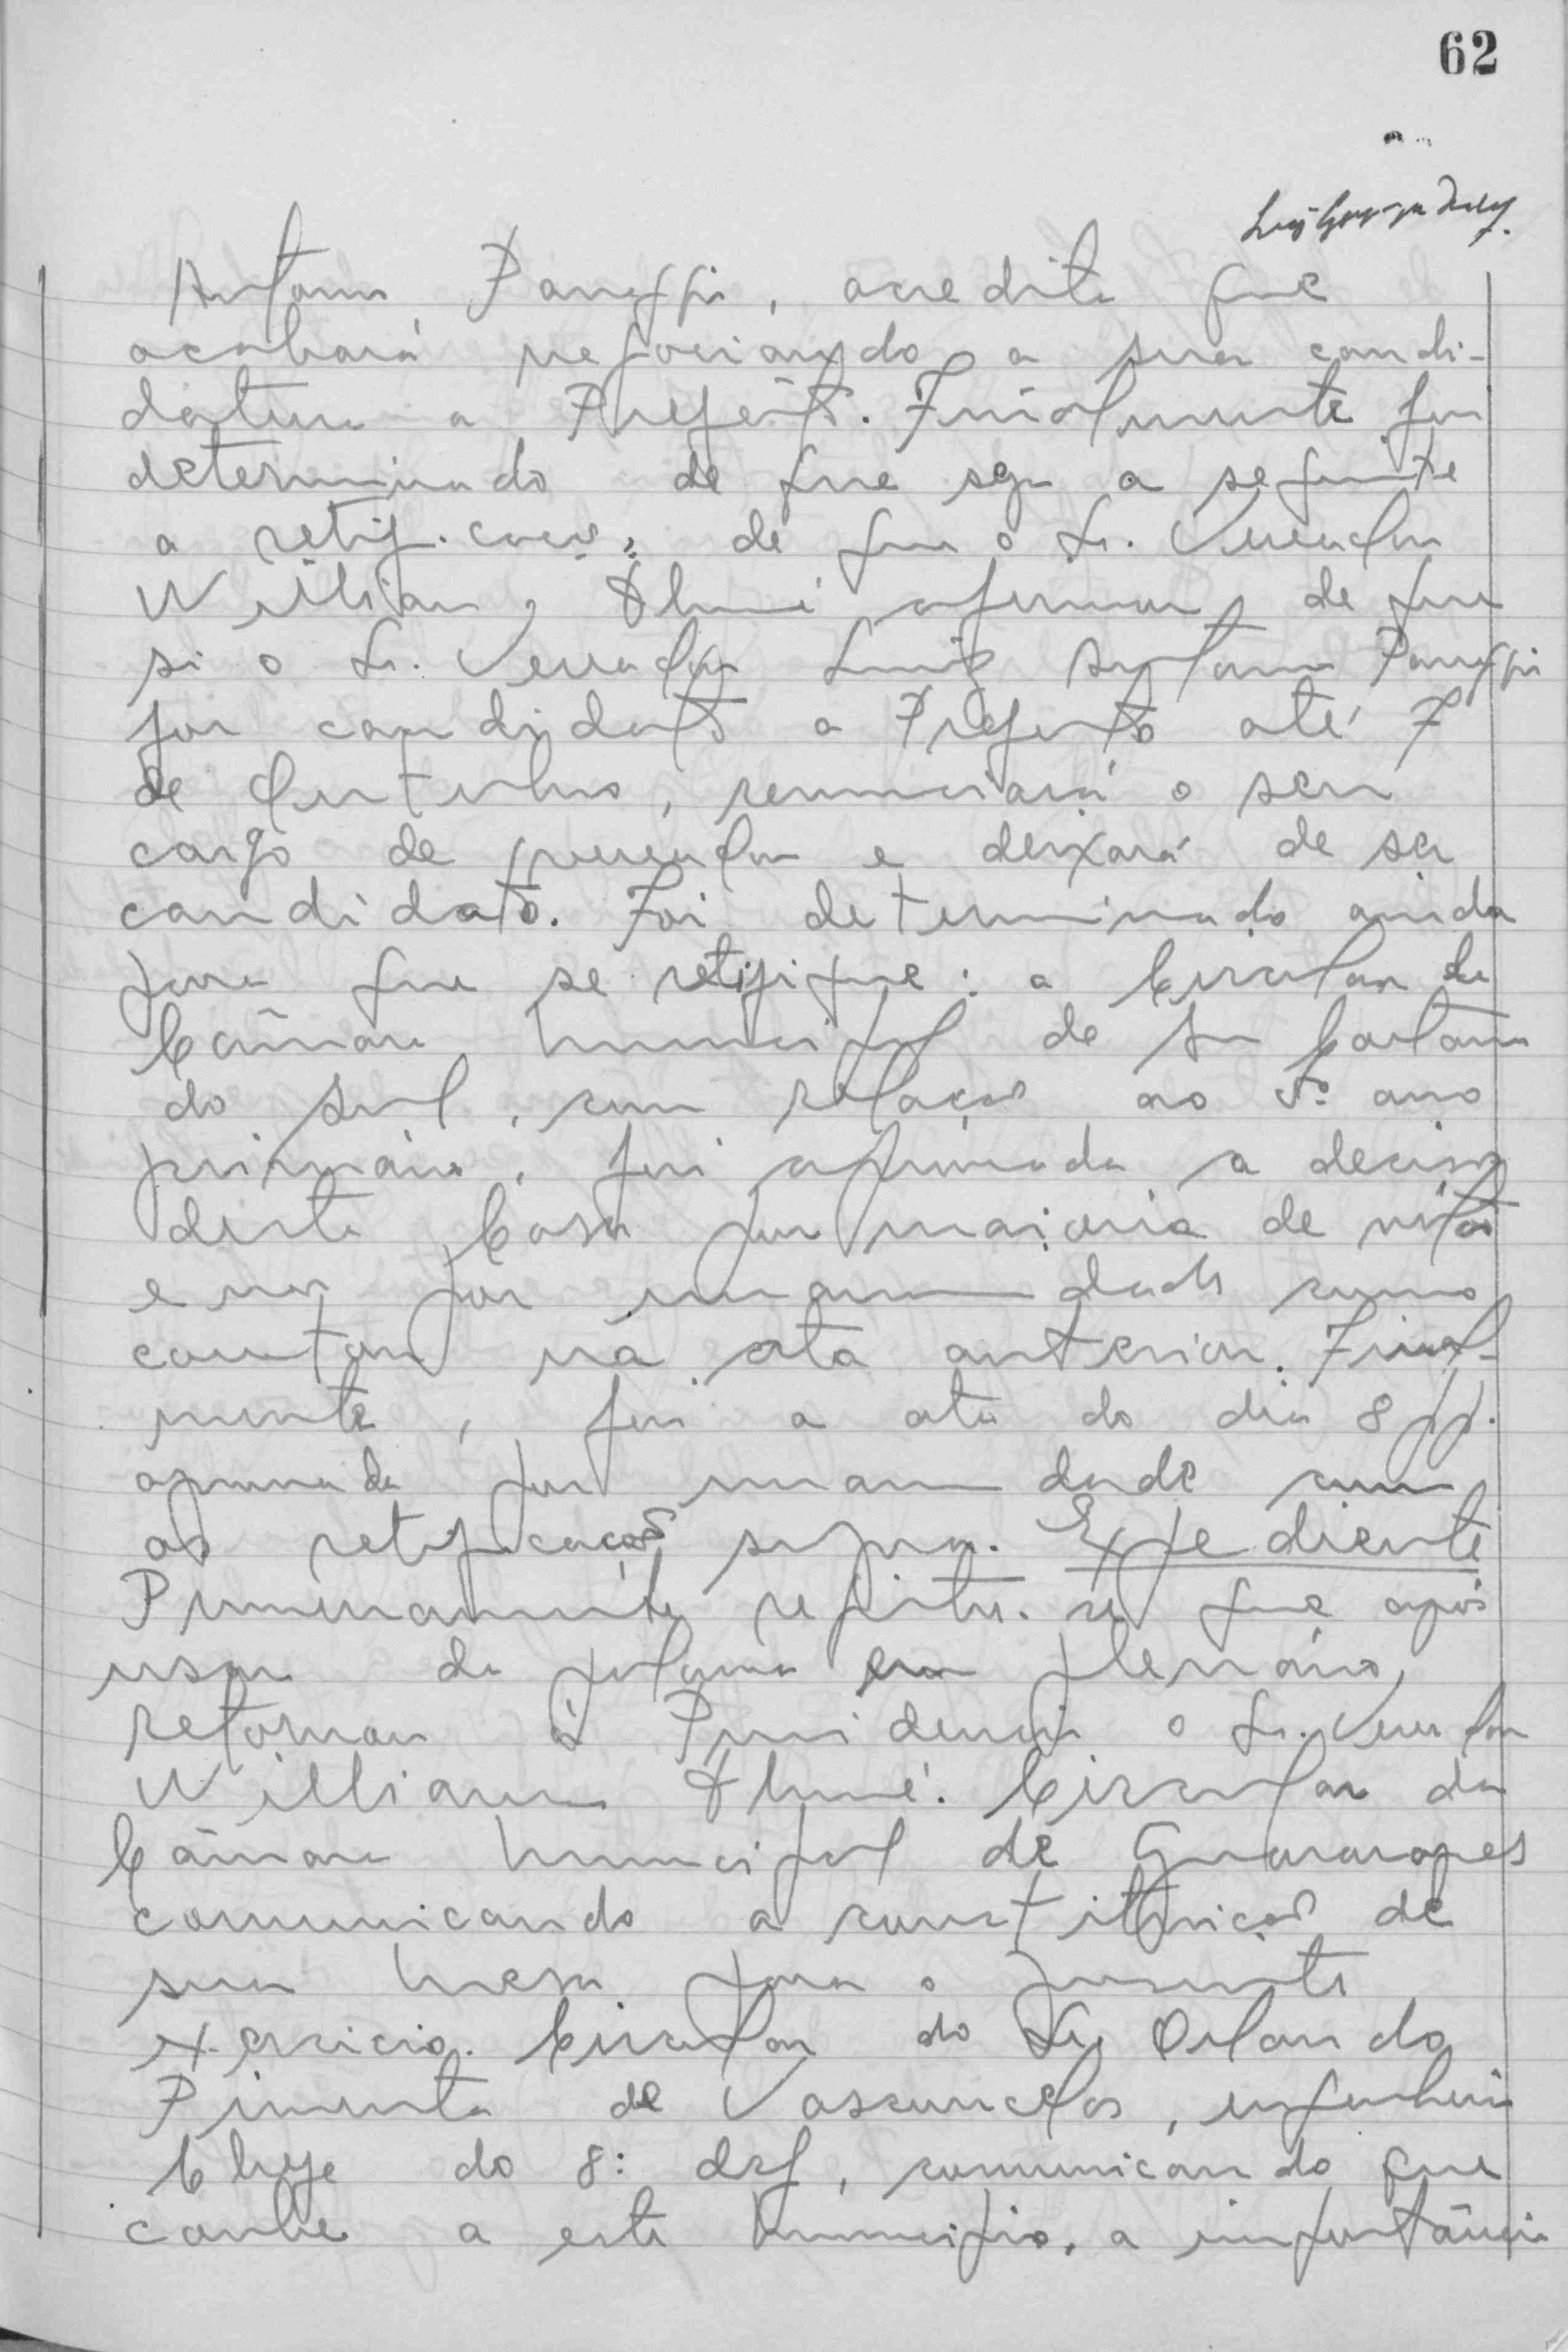 62
Antonio Panuffi, acredita que
acabará negociando a sua candi-
datura a Prefeito. Finalmente foi
determinado de que seja a seguinte
a retificação: de que o Sr. Vereador
William, afirmou de que
si o Sr. Vereador Luiz Antonio Panuffi
for candidato a Prefeito até 7
de Outubro, renunciará o seu
cargo de vereador e deixará de ser
candidato. Foi determinado ainda
para que se retifique: a Circular da
Câmara Municipal de São Caetano
do Sul, com relação ao 5º ano
primário, foi aprovada a decisão
desta Casa por maioria de votos
e não por unanimidade como
constou na ata anterior. Final-
mente, foi a ata do dia 8 pp.
aprovada por unanimidade com
as retificações supra. Expediente
Primeiramente registra-se que após
usar da palavra em plenário,
retornou à Presidencia o Sr. Vereador
William. Circular da
Câmara Municipal de Guararapes
comunicando a constituição de
sua Mesa para o presente
exercicio. Circular do Sr. Orlando
Pimenta de Vasconcelos, engenheiro
Chefe do 8: , comunicando que
coube a este Municipio, a importância